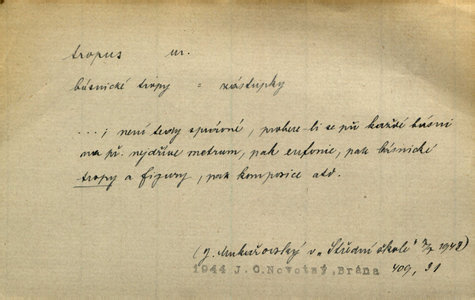 tropus m.
básnické tropy = zástupky
...; není tedy správné, probere-li se při každé básni
na př. nejdříve metrum, pak eufonie, pak básnické
tropy a figury, pak komposice atd.
(J. Mukařovský v „Střední škole" 1948)
1944 J.O.Novotný,Brána 409, 31